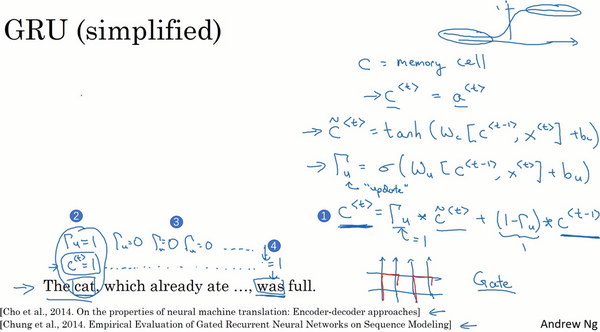 GRU (simplified)
1
C = memory cell
→ C^{<t>} = a^{<t>}
→ C̃^{<t>} = tanh (W_c [C^{<t-1>}, x^{<t>}] + b_c)
→ Γ_u = σ (W_u [C^{<t-1>}, x^{<t>}] + b_u)
"update"
1 C^{<t>} = Γ_u * C̃^{<t>} + (1-Γ_u) * C^{<t-1>}
=1 1
2 3 4
Γ_u=1 Γ_u=0 Γ_u=0 Γ_u=0 .....
→ C^{<t>}=1 ............ =1
→ The cat, which already ate ..., was full.
Gate
[Cho et al., 2014. On the properties of neural machine translation: Encoder-decoder approaches] ←
[Chung et al., 2014. Empirical Evaluation of Gated Recurrent Neural Networks on Sequence Modeling] ←
Andrew Ng